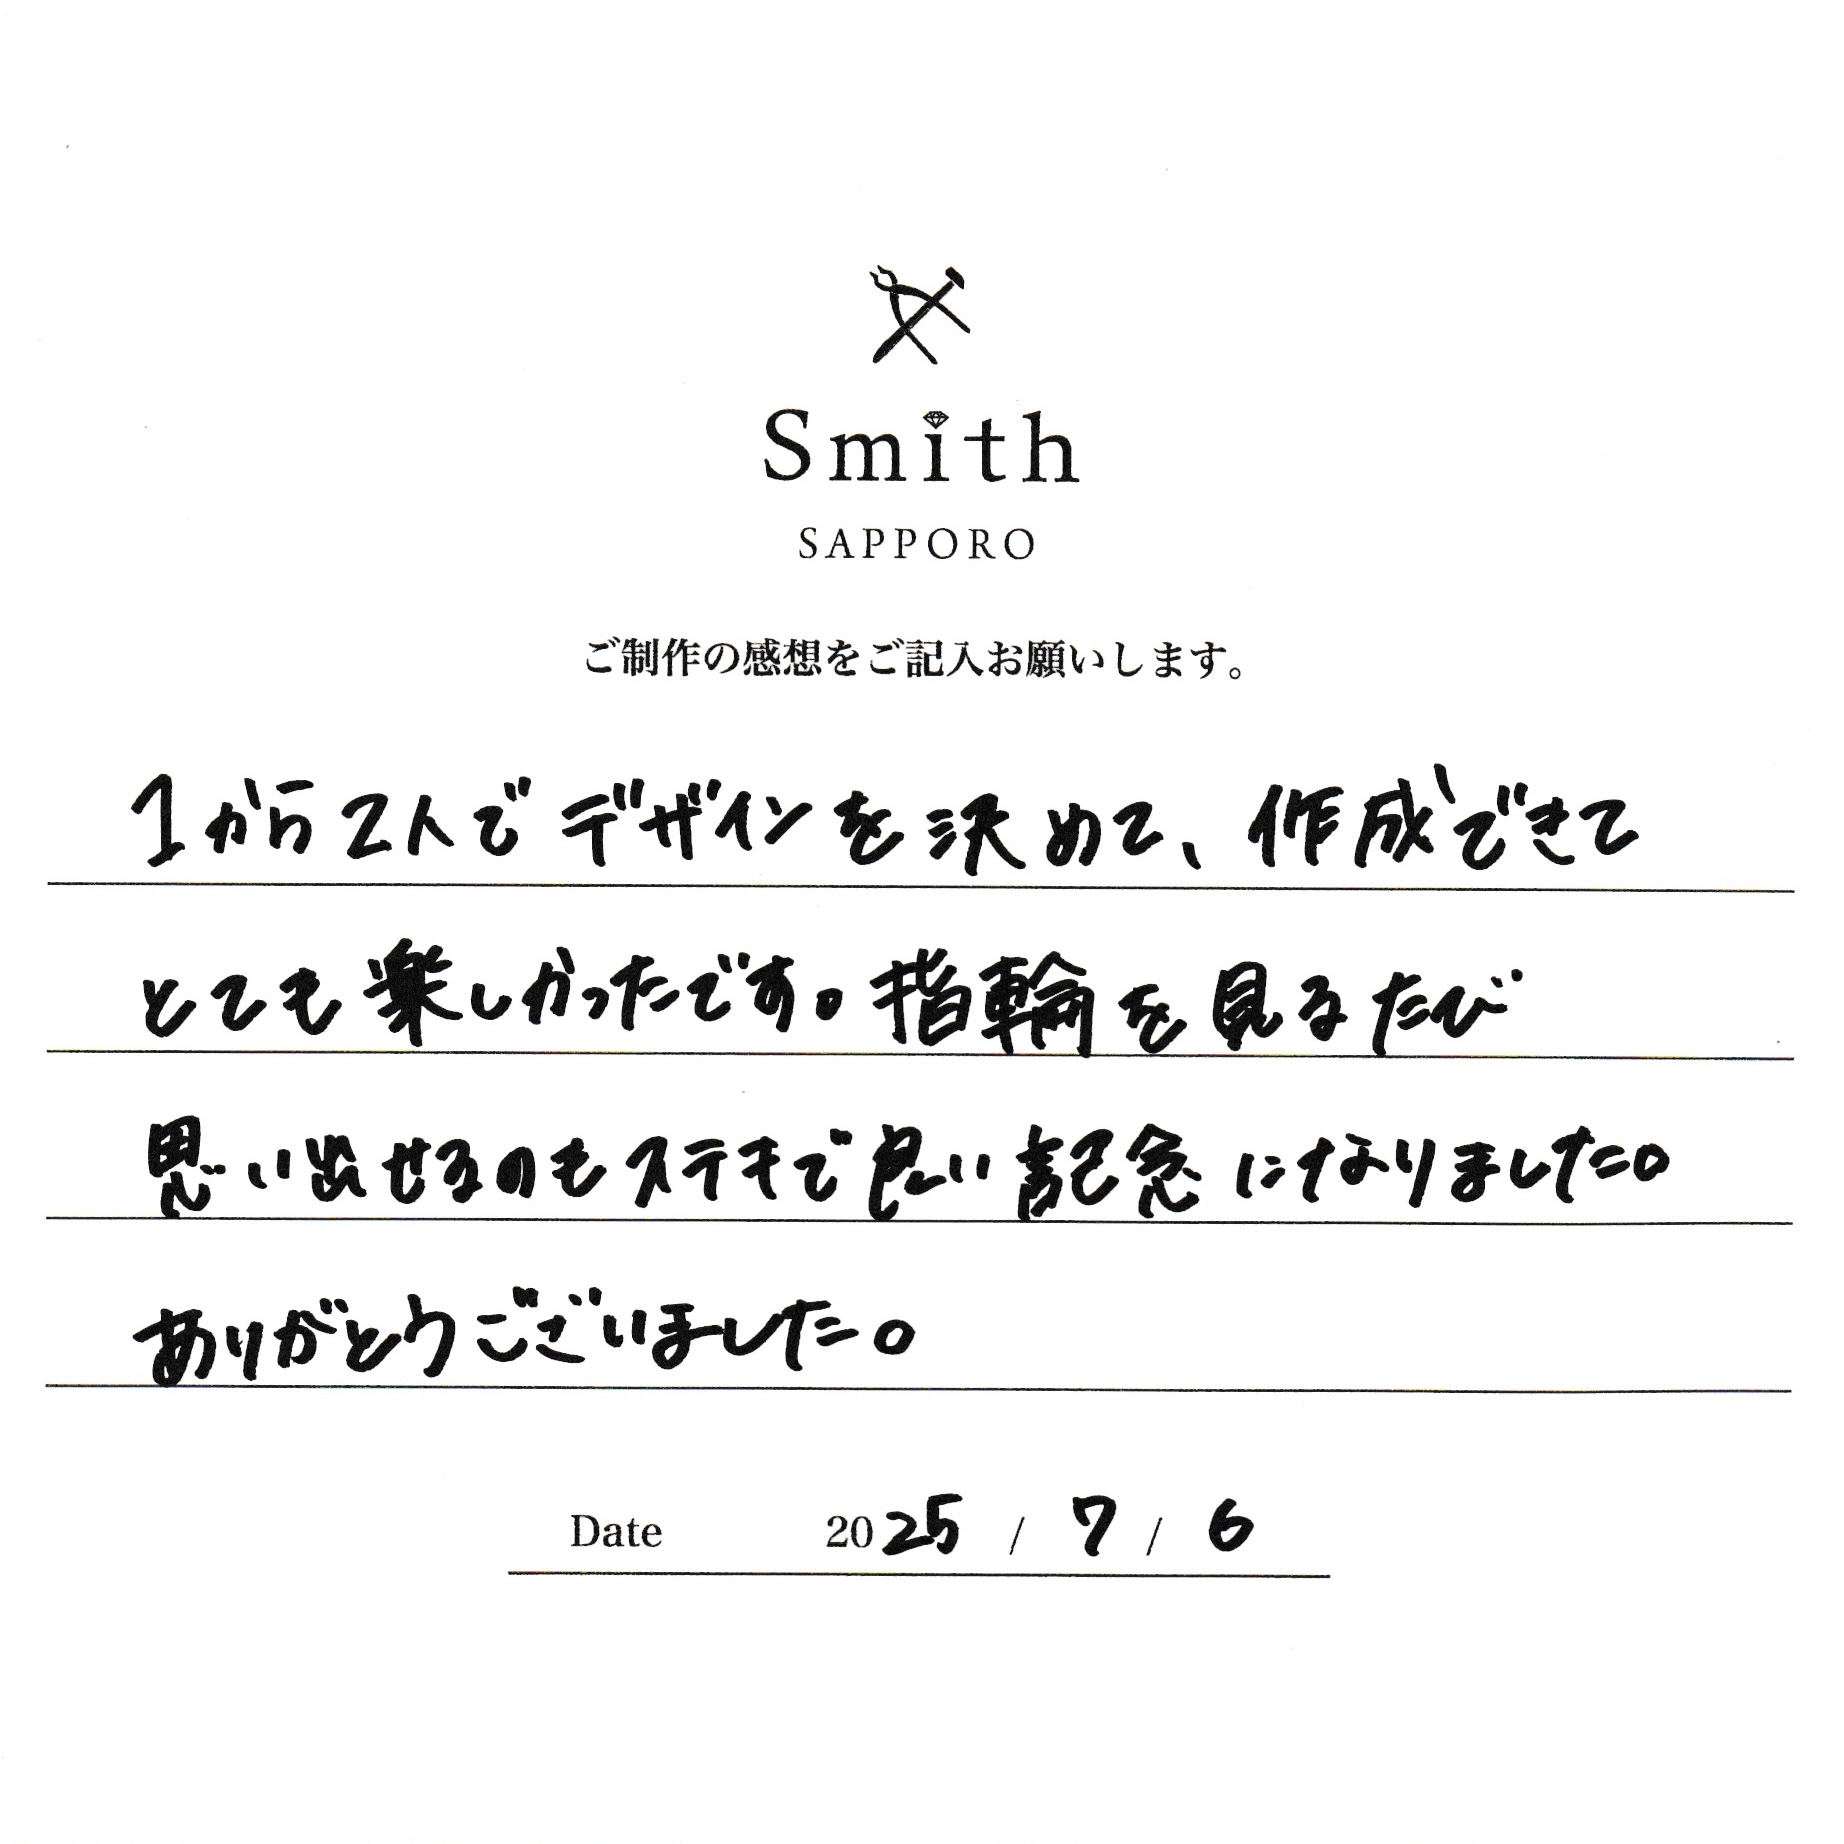 Smith
SAPPORO
ご制作の感想をご記入お願いします。
1から2人でデザインを決めて、作成できて
とても楽しかったです。指輪を見るたび
思い出せるのもステキで良い記念になりました。
ありがとうございました。
Date 2025 / 7 / 6